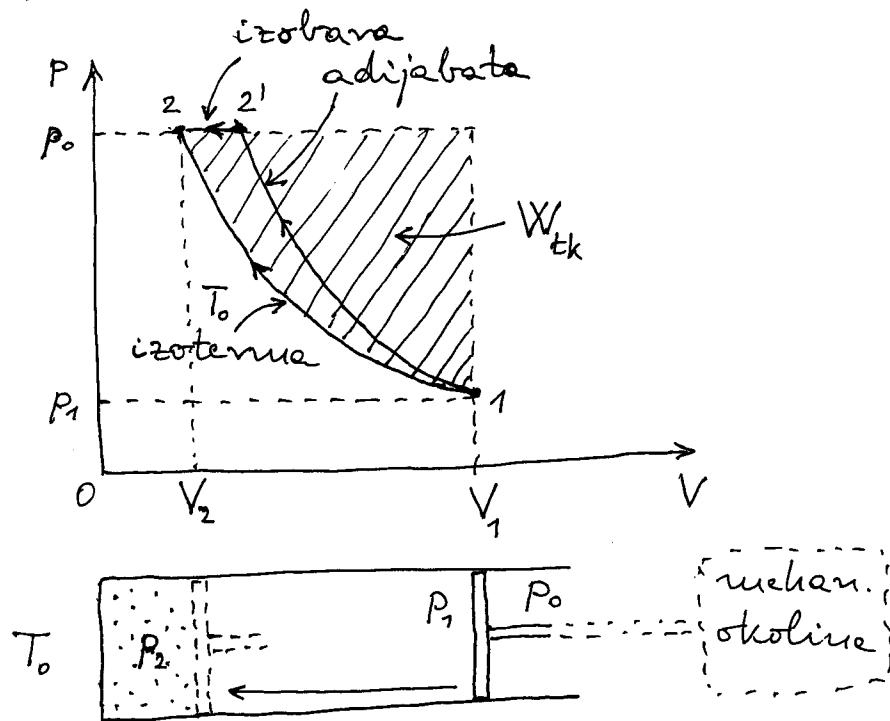 izobara
adijabata
P
2 2'
p₀
W_tk
T₀
izoterma
p₁
1
0
V₂
V₁
V
T₀
p₂
p₁
p₀
mehan.
okolina